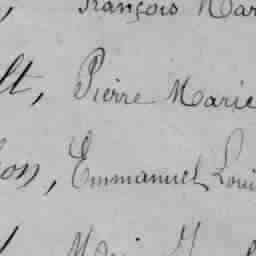 François Mar
lt, Pierre Marie
on, Emmanuel, Loui